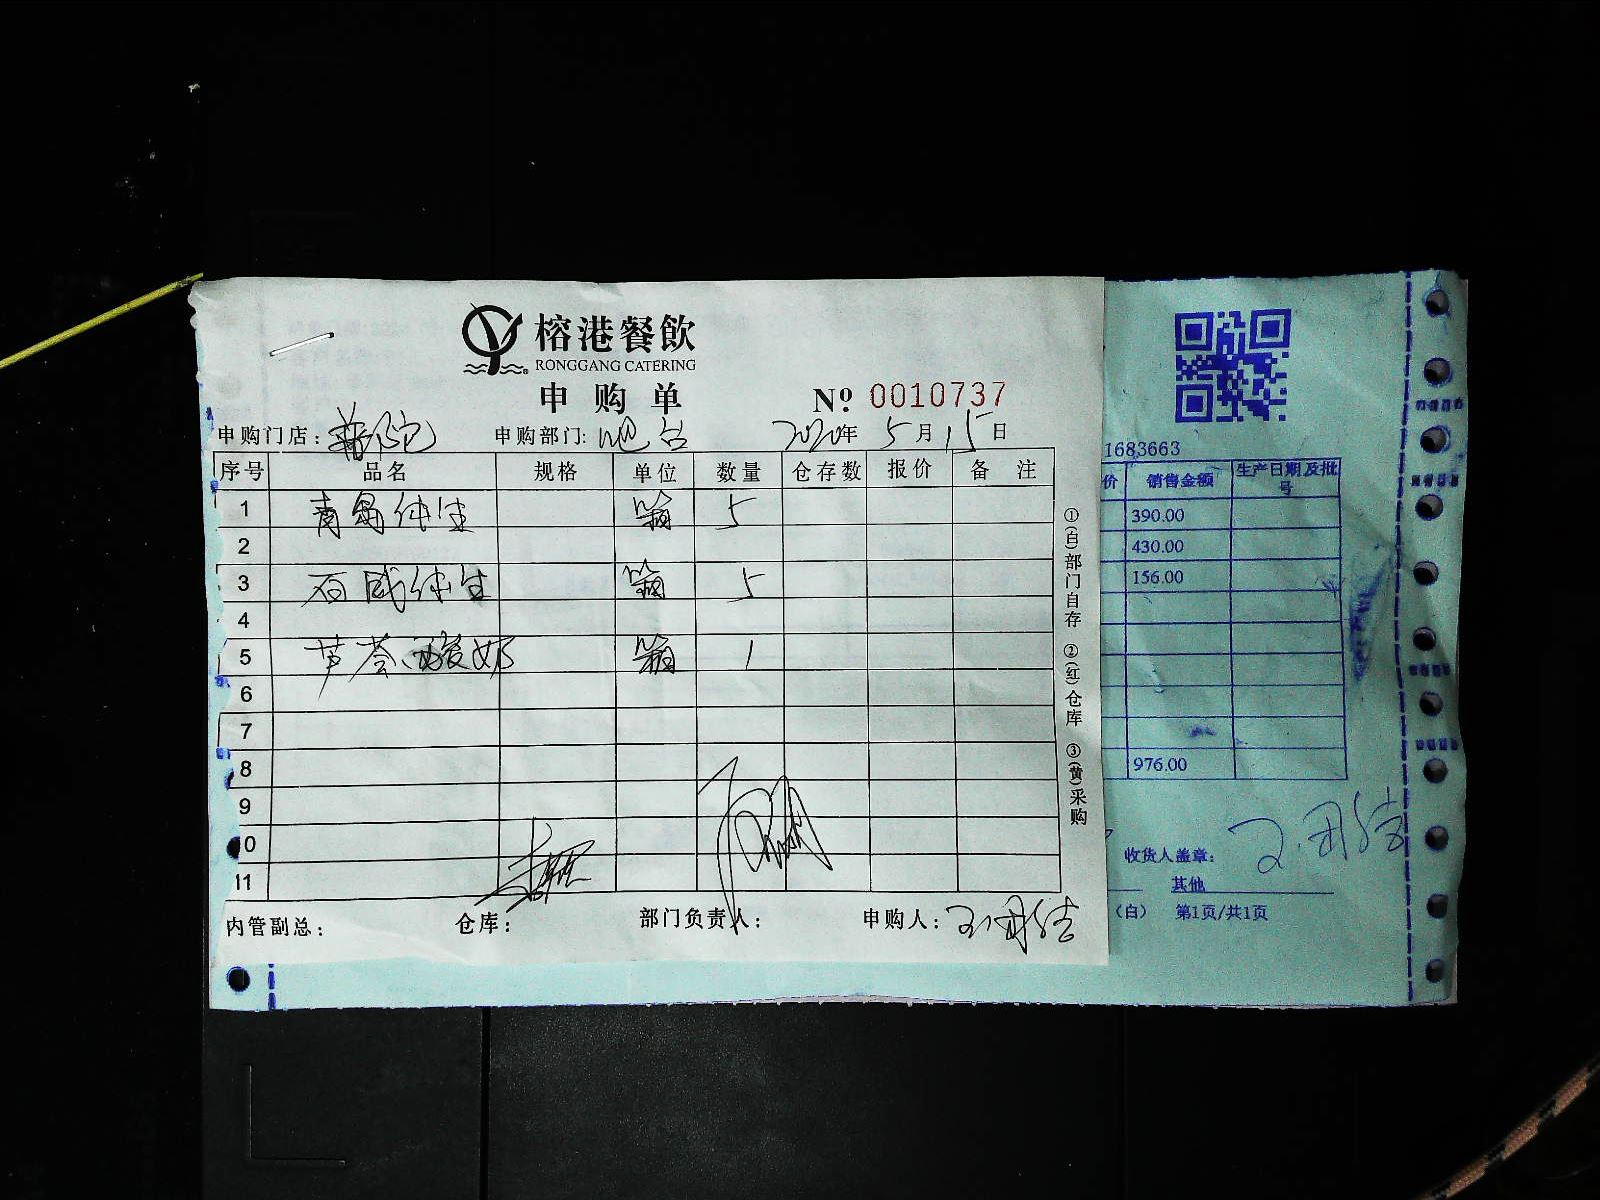 榕港餐飲
RONGGANG CATERING
申购单
№ 0010737
申购门店：普陀 申购部门：吧台 2020年5月15日
序号 品名 规格 单位 数量 仓存数 报价 备注
1 青岛纯生 箱 5
2
3 百威纯生 箱 5
4
5 芦荟酸奶 箱 1
6
7
8
9
10
11
内管副总： 仓库： 部门负责人： 申购人：
①(白)部门自存 ②(红)仓库 ③(黄)采购
1683663
价 销售金额 生产日期及批号
390.00
430.00
156.00
976.00
收货人盖章：
其他
（白） 第1页/共1页